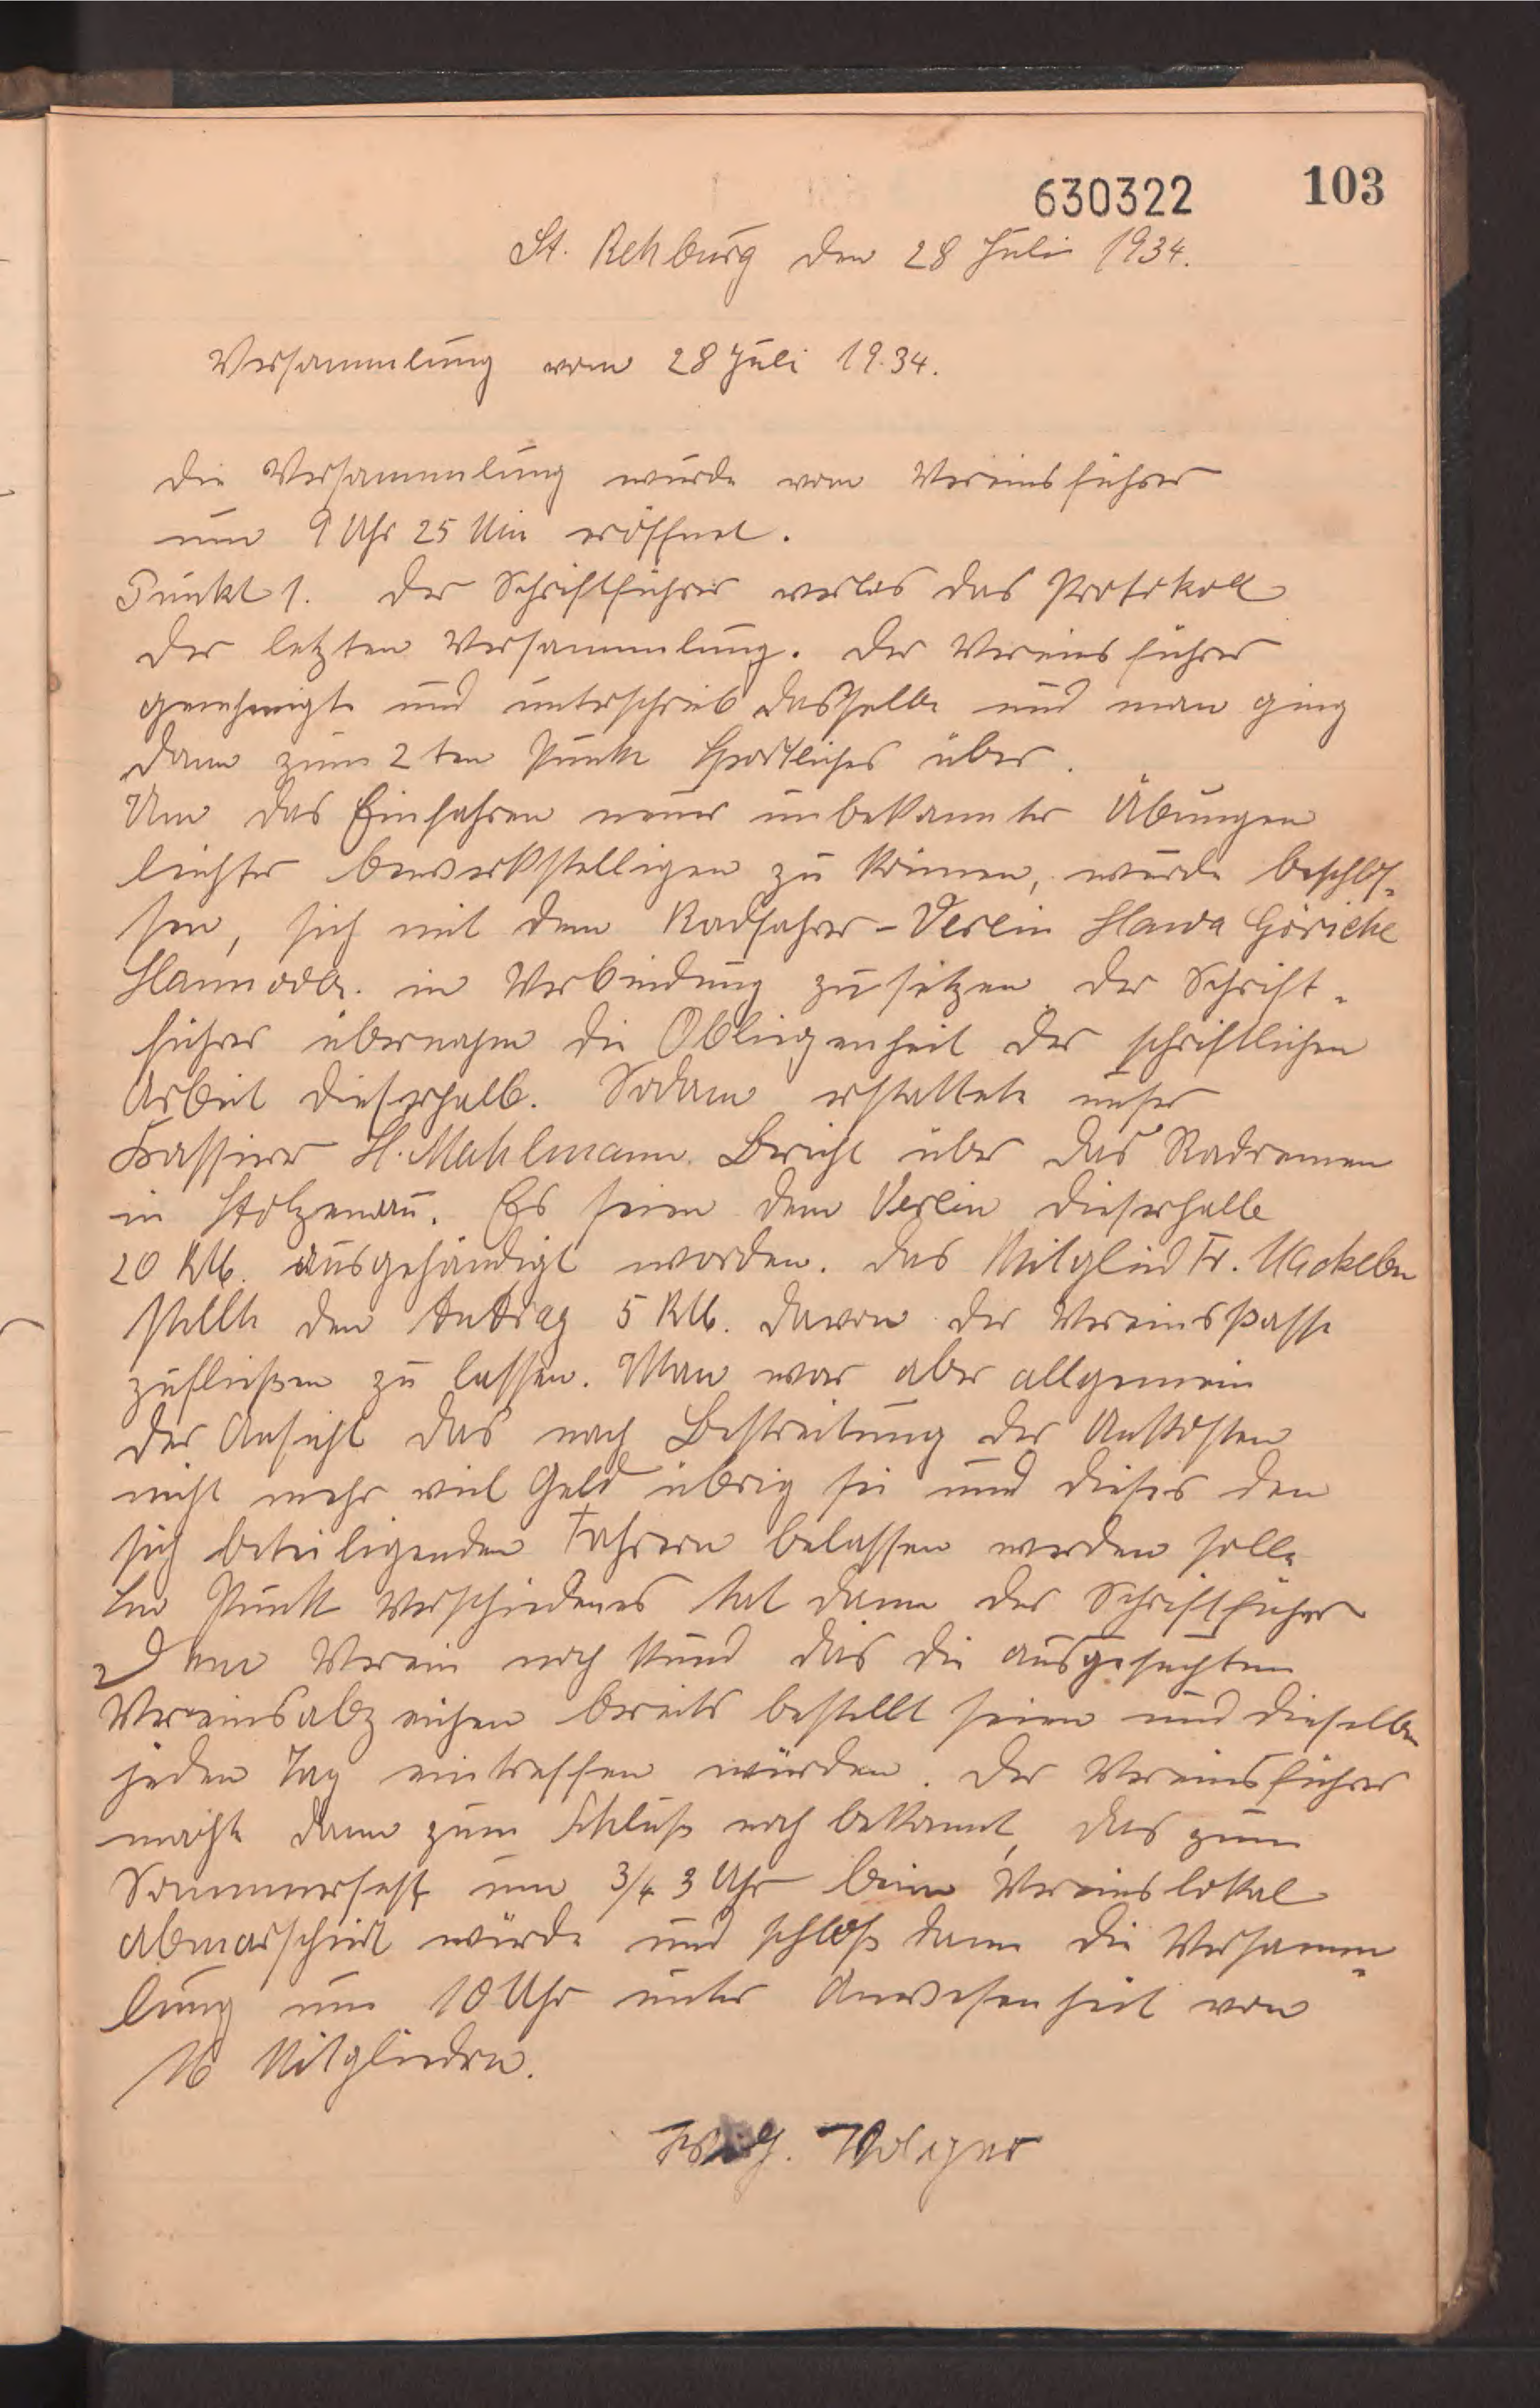 630322 103
St. Rehburg den 28 Juli 1934.
Versammlung vom 28 Juli 19.34.
Die Versammlung wurde vom Vereinsführer
um 9 Uhr 25 Min eröffnet.
Punkt 1. Der Schriftführer verlas das Protokoll
der letzten Versammlung. Der Vereinsführer
genehmigte und unterschrieb dasselbe und man ging
dann zum 2ten Punkte Sportliches über.
Um das Einfahren neuer unbekannter Übungen
leichter bewerkstelligen zu können, wurde beschlos-
sen, sich mit dem Radfahrer-Verein Hawa Göricke
Hannover. in Verbindung zu setzen der Schrift-
führer übernahm die Obliegenheit der schriftlichen
Arbeit dieserhalb. Sodann erstattete unser
Kassierer H. Mahlmann. Bericht über das Radrennen
in Stolzenau. Es seien dem Verein dieserhalb
20 RM. ausgehändigt worden. Das Mitglied Fr.
stellte den Antrag 5 RM. davon der Vereinskasse
zufließen zu lassen. Man war aber allgemein
der Ansicht das nach Bestreitung der Unkosten
nicht mehr viel Geld übrig sei und dieses den
sich beteiligenden Fahrern belassen werden solle
Im Punkt Verschiedenes tat dann der Schriftführer
dem Verein noch kund das die ausgesuchten
Vereinsabzeichen bereits bestellt seien und dieselben
jeden Tag eintreffen würden. Der Vereinsführer
machte dann zum Schluß noch bekannt, das zum
Sommerfest um 3/4 3 Uhr beim Vereinslokal
abmarschiert würde und schloß dann die Versamm-
lung um 10 Uhr unter Anwesenheit von
16 Mitgliedern.